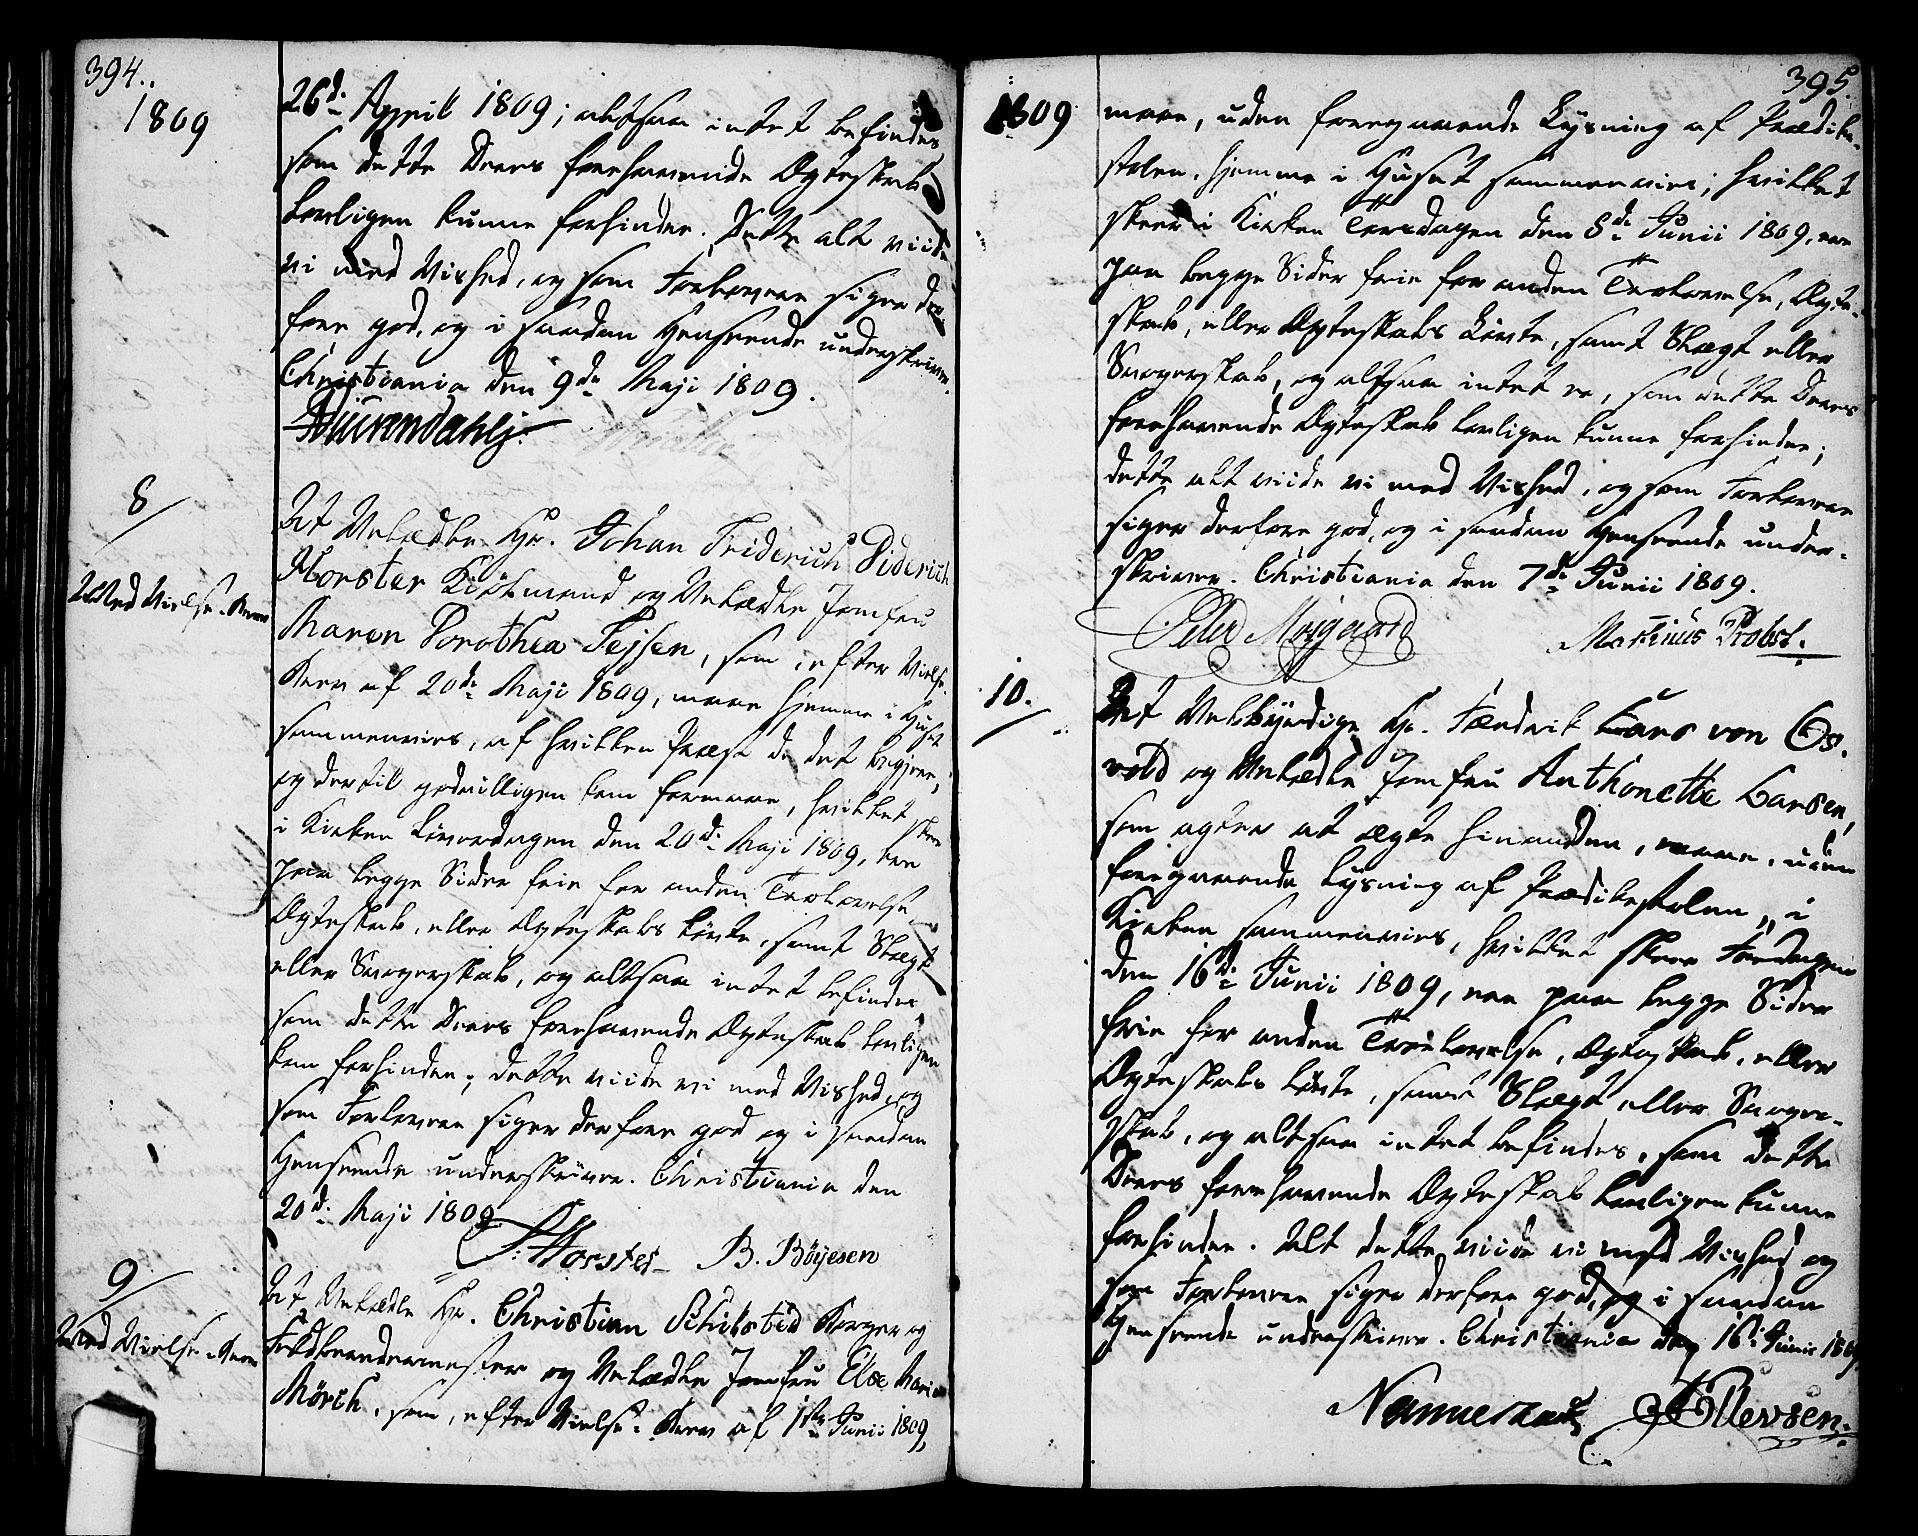 394.
1809
26d. Aprill 1809; altsaa intet befindes
som dette Deres forehavende Ægteskab
lovligen kunne forhindre. Dette alt viide
vi med Vished, og som Forlovere siger der-
fore god, og i saadan Henseende underskriver.
Christiania den 9de Maji 1809.
8
At Velædle Hr. Johan Friderich Diderich
Horster Kiøbmand og Velædle Jomfru
Med Vielse-Brev
Maren Dorothea Jessen, som, efter Vielse-
Brev af 20de Maji 1809, maae hjemme i Huset
sammenvies, af hvilken Præst de det begjerer,
og dertil godvilligen kan formaae, hvilket skeer
i Kirken Løverdagen den 20d. Maji 1809, ere
paa begge Sider frie for anden Trolovelse,
Ægteskab, eller Ægteskabs Løvte, samt Slægt
eller Svogerskab, og altsaa intet befindes,
som dette Deres forehavende Ægteskab lovligen
kan forhindre; dette viide vi med Vished, og
som Forlovere siger derfore god og i saadan
Henseende underskriver. Christiania den
20d. Maji 1809
Horster B. Böyesen
9
At Velædle Hr. Christian Schibsted Borger og
Med Vielse-Brev
Feldbereedermester og Velædle Jomfru Else Maria
Mörch, som, efter Vielse-Brev af 1ste Junii 1809,
395.
1809
maae, uden foregaaende Lysning af Prædike-
stolen, hjemme i Huset sammenvies; hvilket
skeer i Kirken Torsdagen den 8de Junii 1809, ere
paa begge Sider frie for anden Trolovelse, Ægte-
skab, eller Ægteskabs Løvte, samt Slægt eller
Svogerskab, og altsaa intet er, som dette Deres
forehavende Ægteskab lovligen kunne forhindre;
dette alt viide vi med Vished, og som Forlovere
siger derfore god, og i saadan Henseende under-
skriver. Christiania den 7de Junii 1809.
Peter Morgaard Martinus Probst.
10.
At Velbyrdige Hr. Fændrik Lars von Os-
vold og Velædle Jomfru Anthonette Larsen,
som agter at ægte hinanden, maae, uden
foregaaende Lysning af Prædikestolen, i
Kirken sammenvies, hvilket skeer Fredagen
den 16de Junii 1809, ere paa begge Sider
frie for anden Trolovelse, Ægteskab, eller
Ægteskabs Løvte, samt Slægt eller Svoger-
skab, og altsaa intet befindes, som dette
Deres forehavende Ægteskab lovligen kunne
forhindre. Alt dette viide vi med Vished og
som Forlovere siger derfore god, og i saadan
Henseende underskriver. Christiania den 16d. Junii 1809